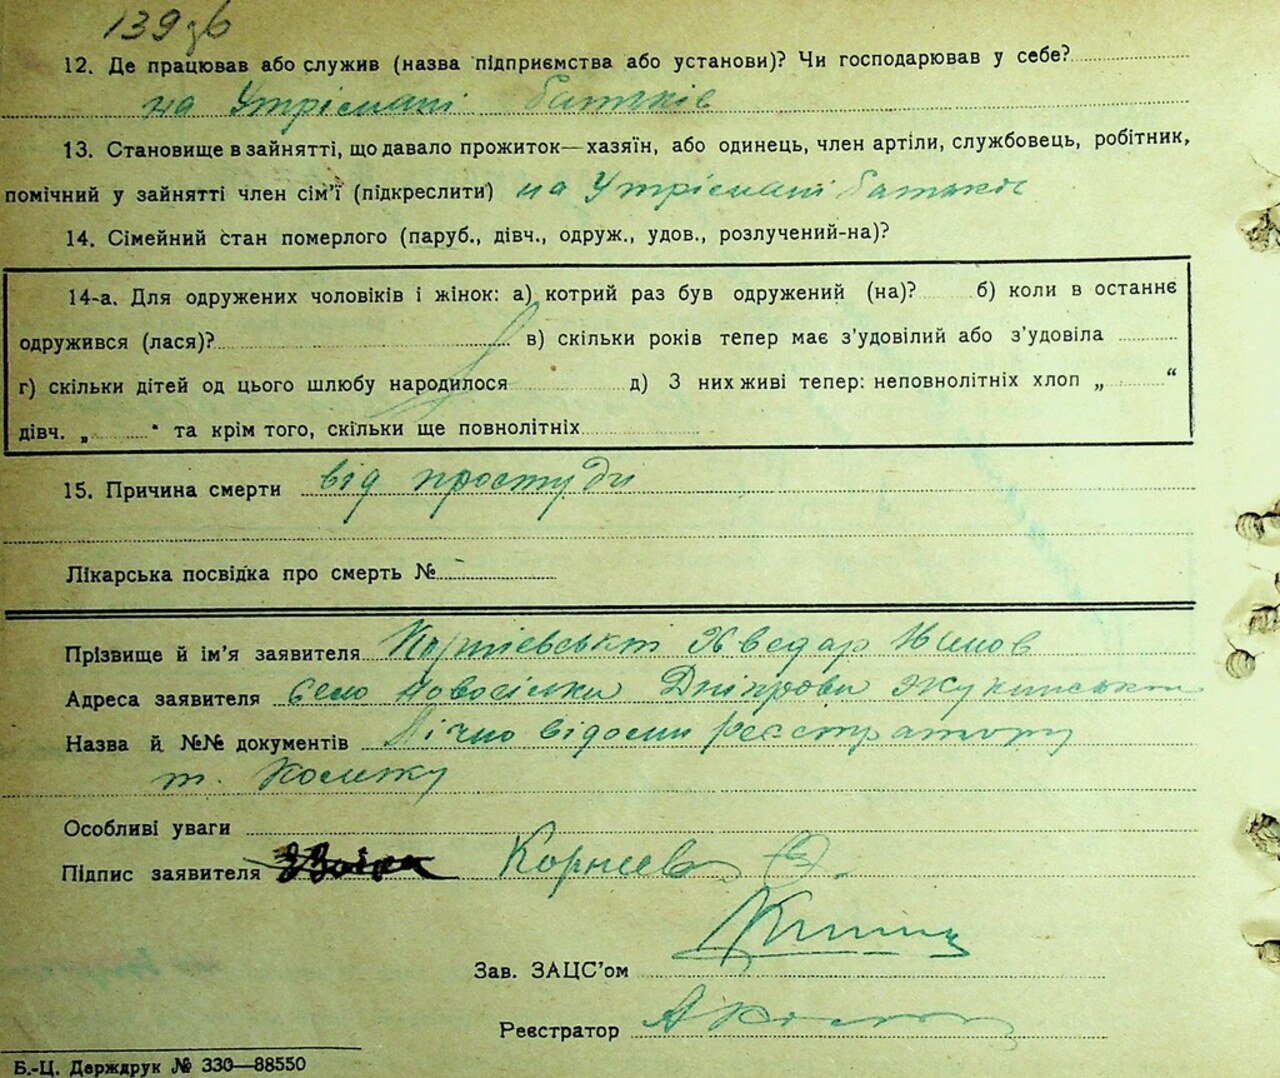 139 зв
12. Де працював або служив (назва підприємства або установи)? Чи господарював у себе?
на Утрімані батьків
13. Становище в зайнятті, що давало прожиток—хазяїн, або одинець, член артіли, службовець, робітник,
помічний у зайнятті член сім'ї (підкреслити) на Утрімані батьків
14. Сімейний стан померлого (паруб., дівч., одруж., удов., розлучений-на)?
14-а. Для одружених чоловіків і жінок: а) котрий раз був одружений (на)? б) коли в останнє
одружився (лася)? в) скільки років тепер має з'удовілий або з'удовіла
г) скільки дітей од цього шлюбу народилося д) З них живі тепер: неповнолітніх хлоп „ “
дівч. „ “ та крім того, скільки ще повнолітніх
15. Причина смерти від простуди
Лікарська посвідка про смерть №
Прізвище й ім'я заявителя Хведар
Адреса заявителя село Новосілки Дніпрови Жукинської
Назва й №№ документів Лічно відомий реєстратору
т.
Особливі уваги
Підпис заявителя Корнеев
Зав. ЗАЦС'ом
Реєстратор
Б.-Ц. Держдрук № 330—88550